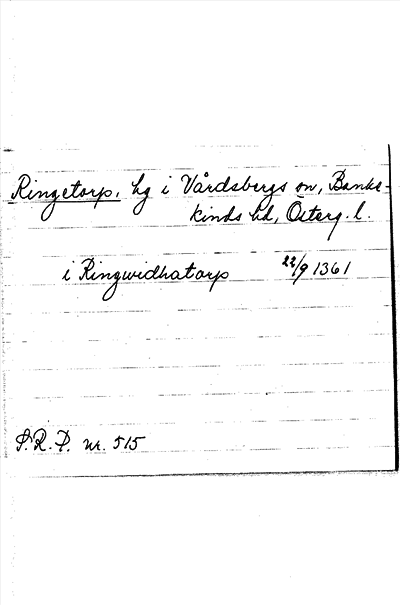 Ringetorp, hg i Vårdsbergs sn, Banke-
kinds hd, Österg. l.
i Ringwidhatorp 22/9 1361
S.R.P. nr. 515